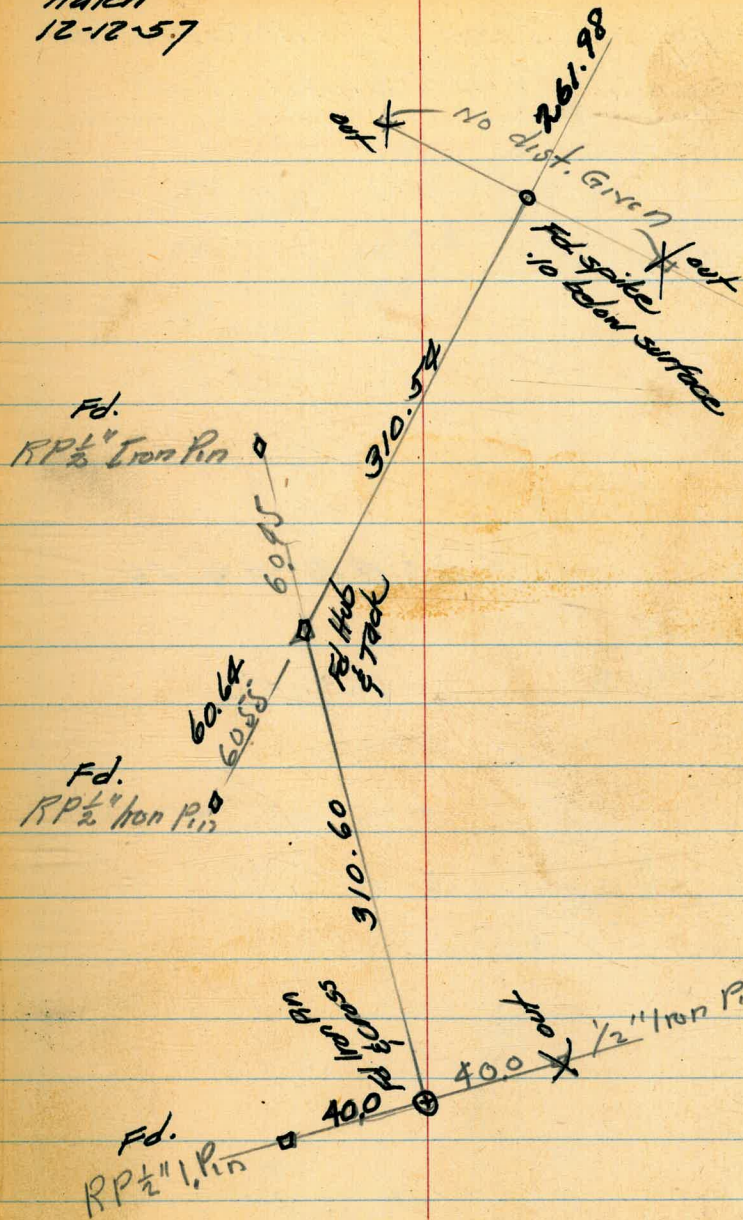 12-12-57
261.98
out
No dist. Given
out
Fd. spike
.10 below surface
310.54
Fd.
RP ½" Iron Pin
60.45
Fd Hub
& Tack
60.64
60.55
Fd.
RP ½" Iron Pin
310.60
Fd Iron Pin
& Cross
out
½" Iron P
40.0
40.0
Fd.
RP ½" I. Pin